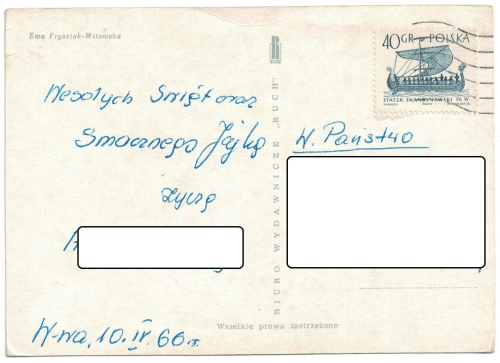 Ewa Frysztak-Witowska
40 GR POLSKA
STATEK SKANDYNAWSKI IX W.
Wesołych Świąt oraz
Smacznego Jajka
życzą
W. Państwo
BIURO WYDAWNICZE „RUCH”
Wszelkie prawa zastrzeżone
W-wa, 10.IV.66r.